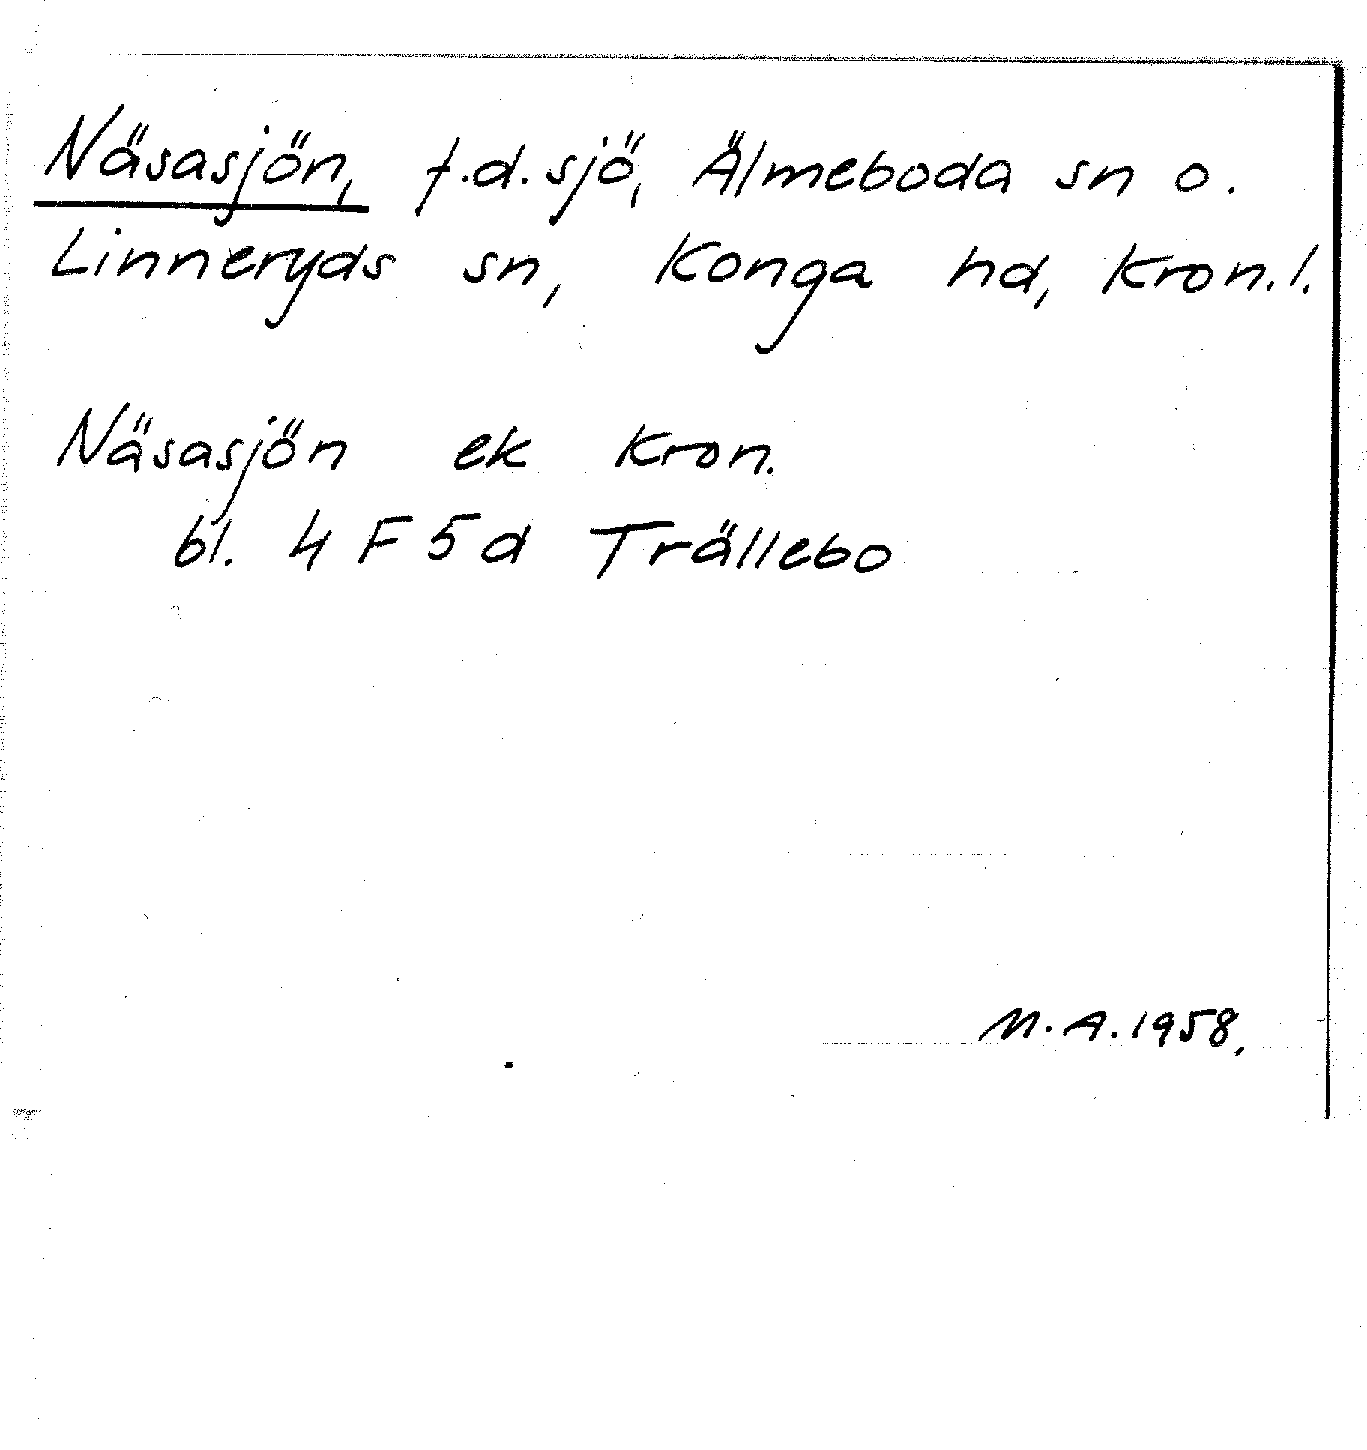 Näsasjön, f.d. sjö, Älmeboda sn o.
Linneryds sn, Konga hd, Kron. l.
Näsasjön ek Kron.
bl. 4 F 5 d Trällebo
M. A. 1958.